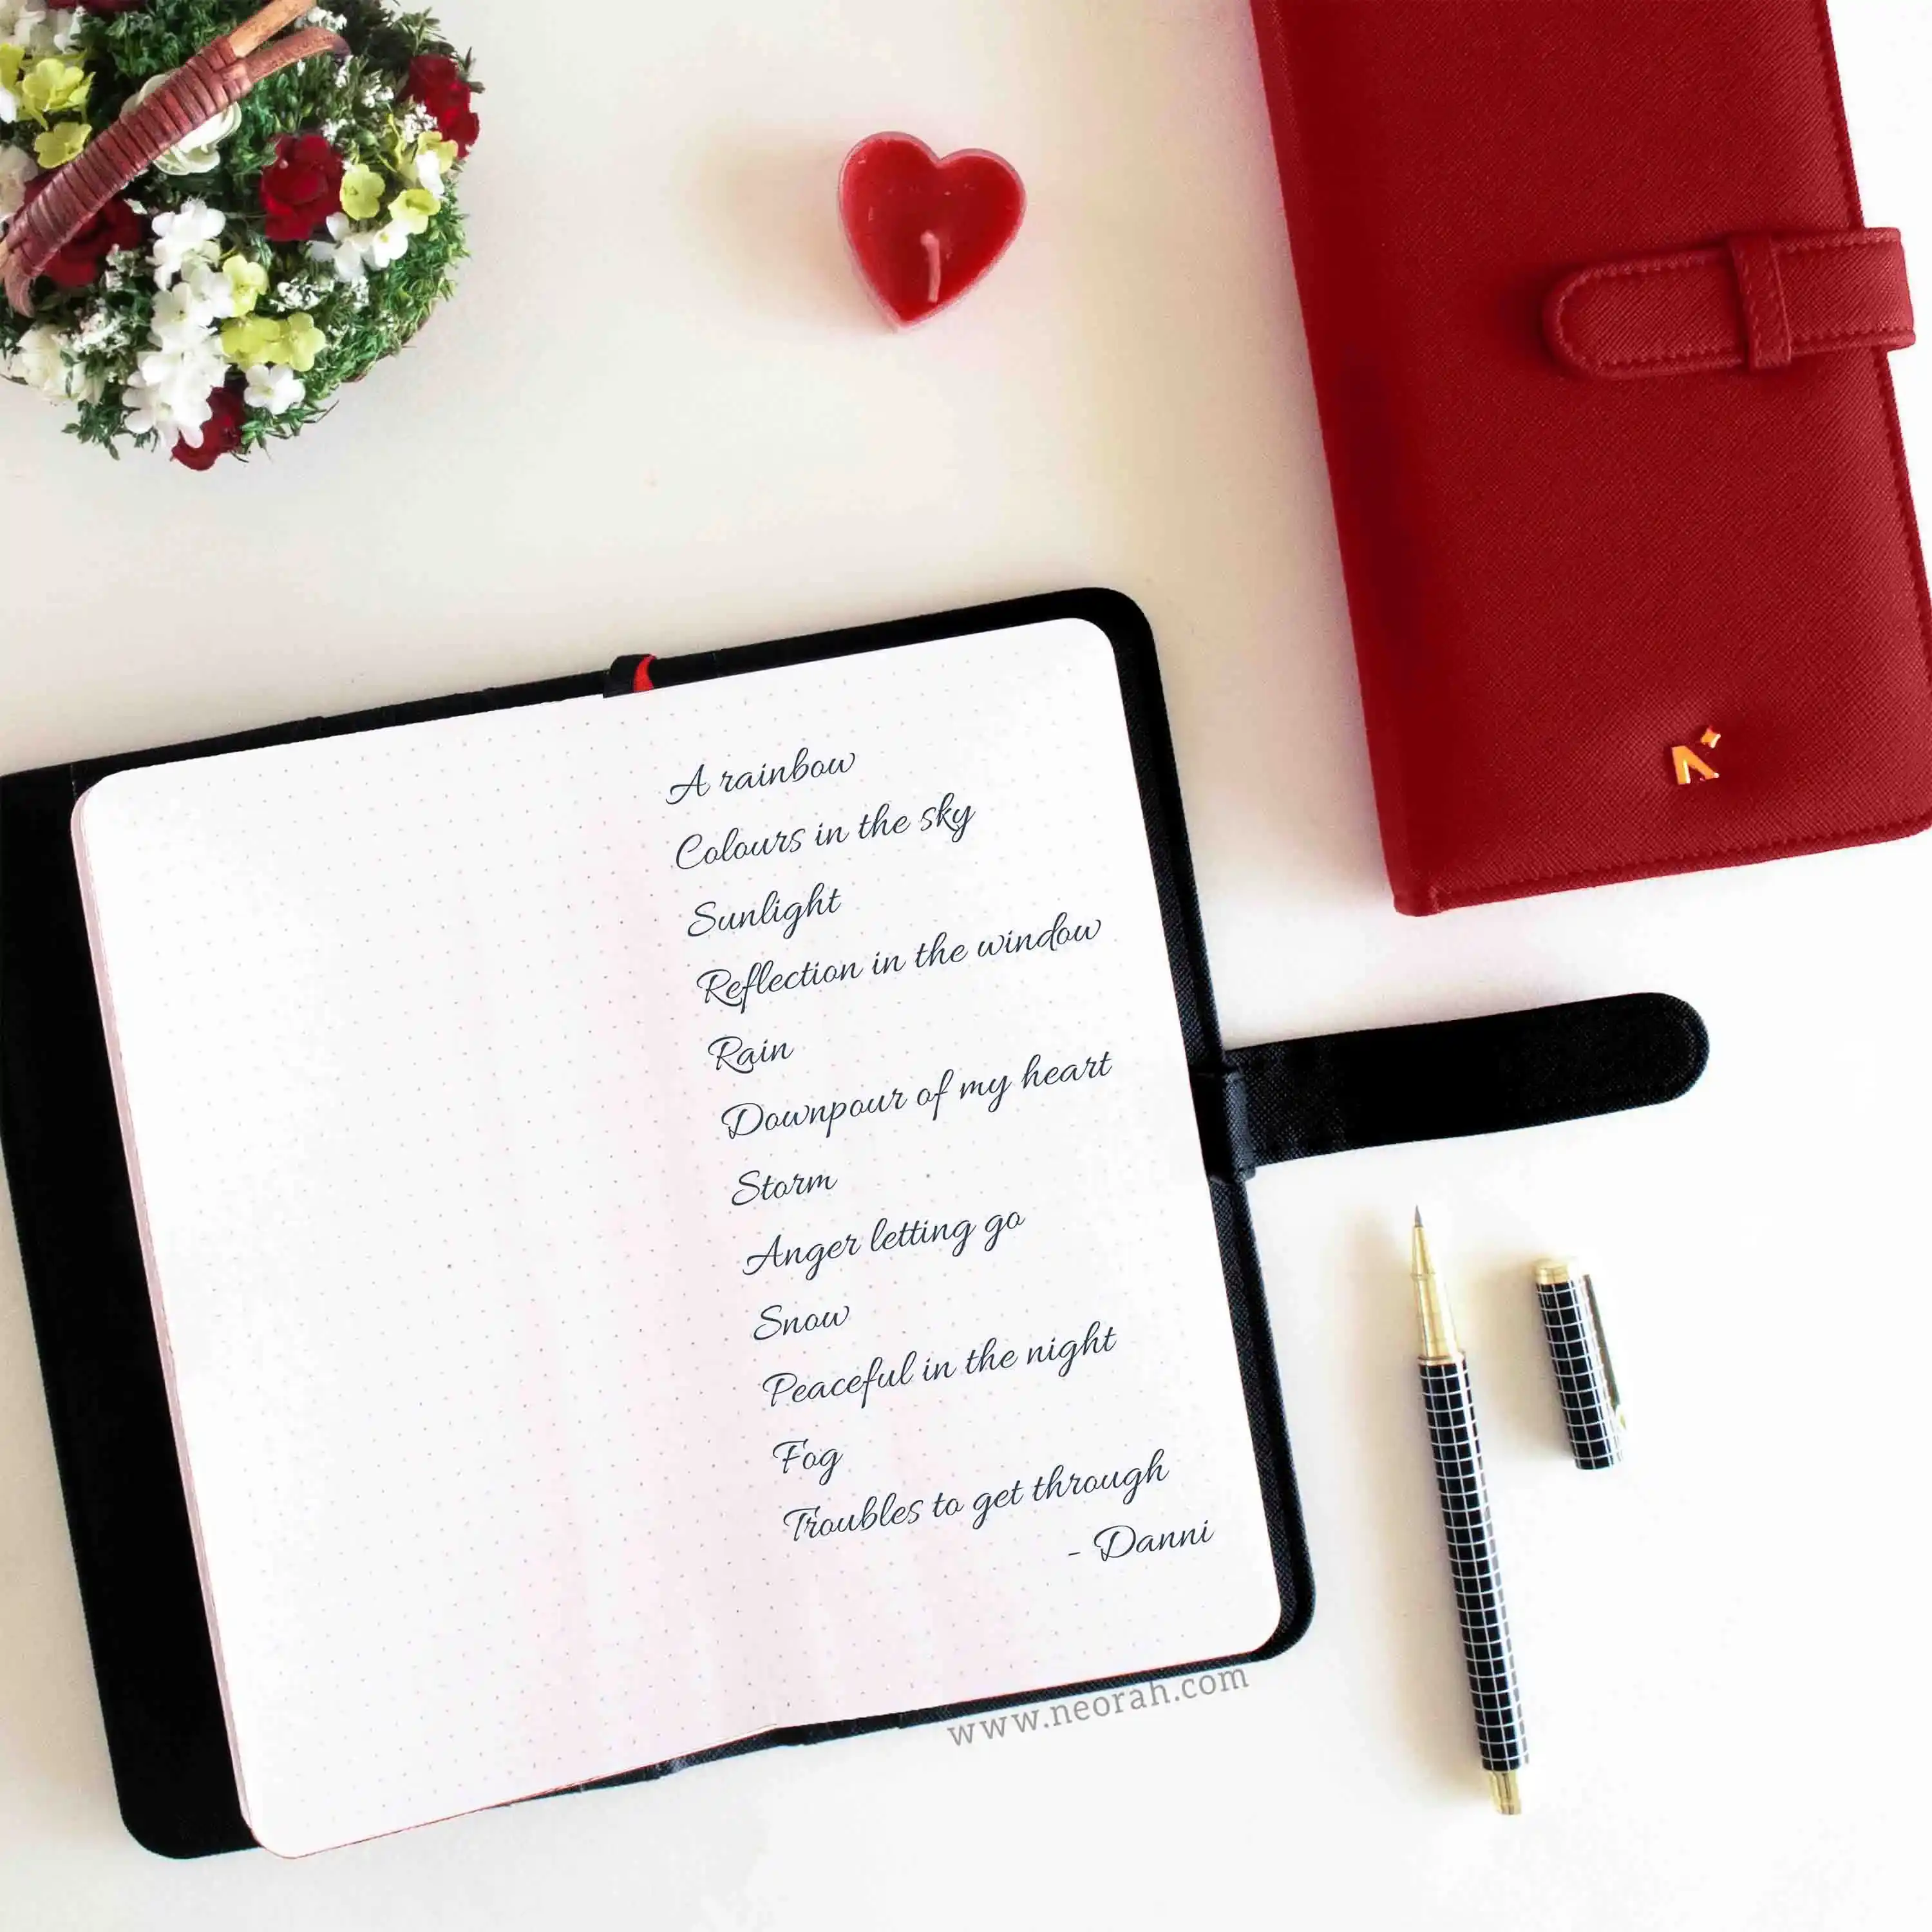 A rainbow
Colours in the sky
Sunlight
Reflection in the window
Rain
Downpour of my heart
Storm
Anger letting go
Snow
Peaceful in the night
Fog
Troubles to get through
- Danni
www.neorah.com